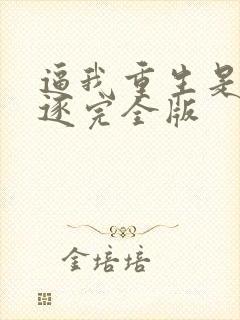 逼我重生是
逐完全版
金培培